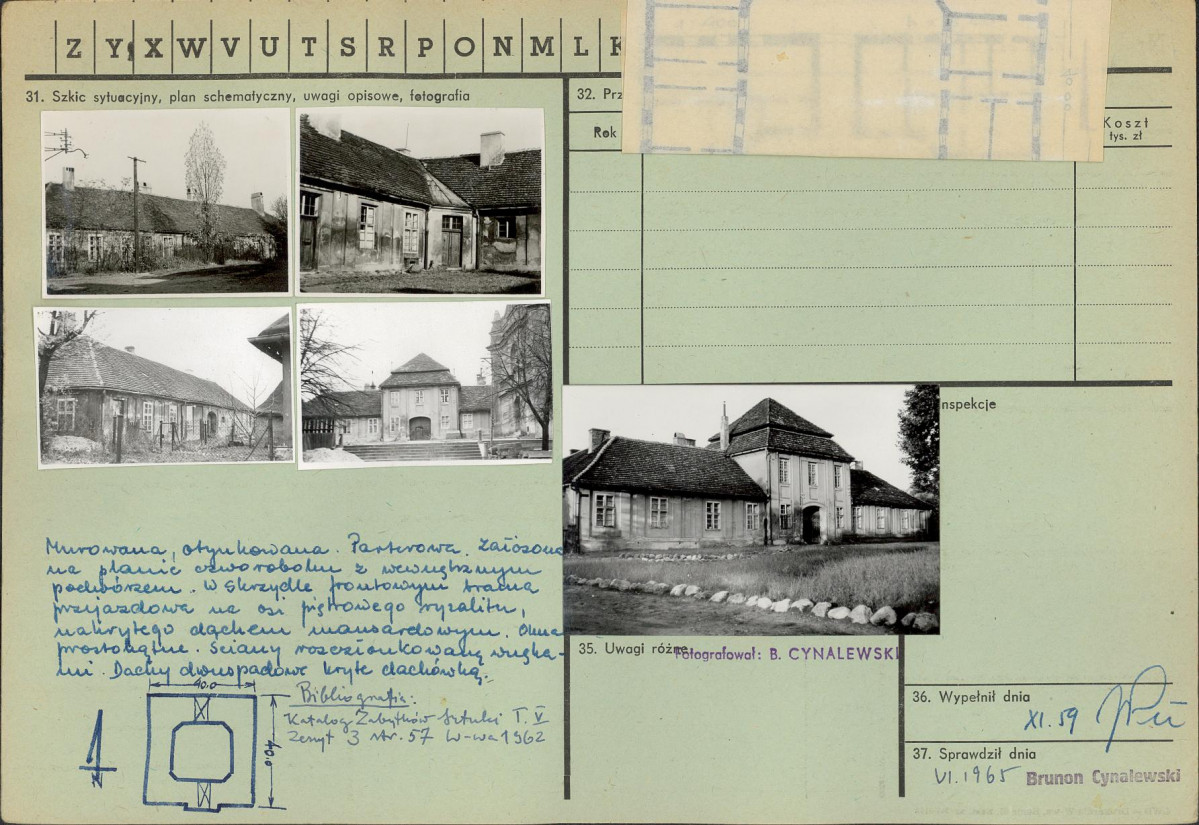 Z Y X W V U T S R P O N M L K
31. Szkic sytuacyjny, plan schematyczny, uwagi opisowe, fotografia
32. Prz
Rok
Koszt
tys. zł
nspekcje
Murowana, otynkowana. Parterowa. Założona
na planie czworoboku z wewnętrznym
podwórzem. W skrzydle frontowym brama
przyjazdowa na osi piętrowego ryzalitu,
nakrytego dachem mansardowym. Okna
prostokątne. Ściany rozczłonkowane wnęka-
mi. Dachy dwuspadowe kryte dachówką.
40.0
40.0
Bibliografia:
Katalog Zabytków Sztuki T. V
Zeszyt 3 str. 57 W-wa 1962
35. Uwagi różne
Fotografował: B. CYNALEWSKI
36. Wypełnił dnia
XI. 59
37. Sprawdził dnia
VI. 1965 Brunon Cynalewski